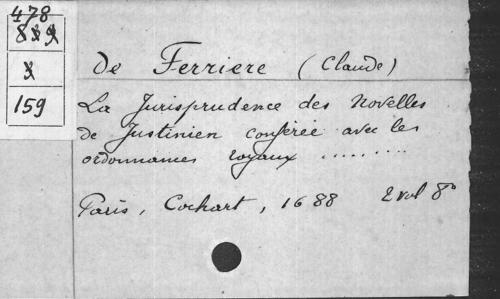 478
889
X
159
de Ferriere (Claude)
La Jurisprudence des Novelles
de Justinien conferée avec les
ordonnances royaux ........
Paris, Cochart, 1688 2 vol 8°